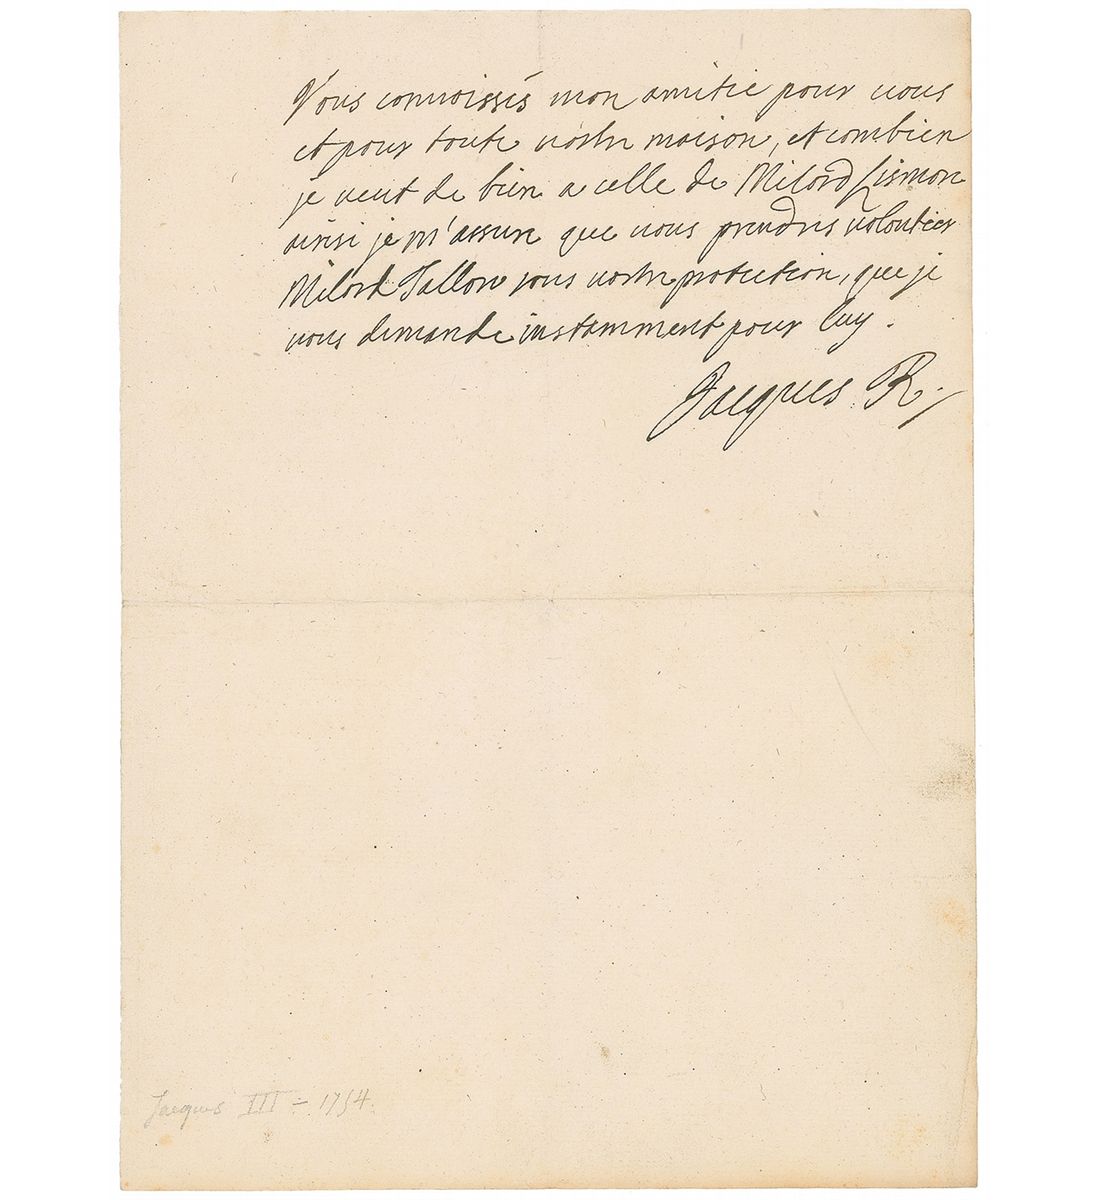 Vous connoissés mon amitie pour vous
et pour toute vostre maison, et combien
je veut de bien a celle de Milord Lismon
ainsi je m'assure que vous prendrés volontier
Milord Tallow sous vostre protection, que je
vous demande instamment pour luy.
Jacques R.
Jacques III - 1754